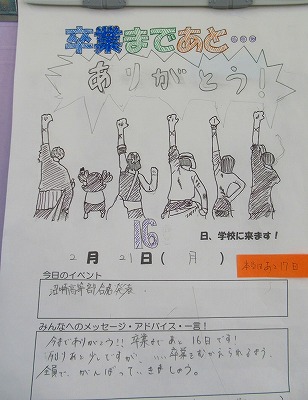 卒業まであと…
ありがとう!
16
日、学校に来ます!
2月21日(月)
本当はあと17日
今日のイベント
高等部合格発表
みんなへのメッセージ・アドバイス・一言!
今までありがとう!!卒業まであと16日です!
残りあと少しですが、
卒業をむかえられるよう、
全員で、がんばっていきましょう。